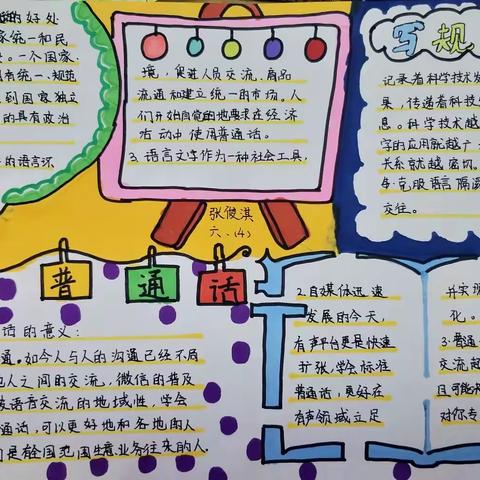 的好处
家统一和民
。一个国家.
有统一、规范
到国家独立
的具有政治
的语言环
境，促进人员交流、商品
流通和建立统一的市场。人
们开始自觉的地要求在经济
活动中使用普通话。
3.语言文字作为一种社会工具,
张俊淇
六、(4)
写规
记录着科学技术发
果，传递着科技
息。科学技术越
学的应用就越广
关系就越密切。
4.克服语言隔
交往。
普通话
话的意义:
通。如今人与人的沟通已经不局
人之间的交流，微信的普及
语言交流的地域性，学会
通话，可以更好地和各地的人
是全国范围生意业务往来的人.
2.自媒体迅速
发展的今天，
有声平台更是快速
扩张，学会标准
普通话，更好在
有声领域立足
并实
化。
3.普通
交流起
且可能
对你专